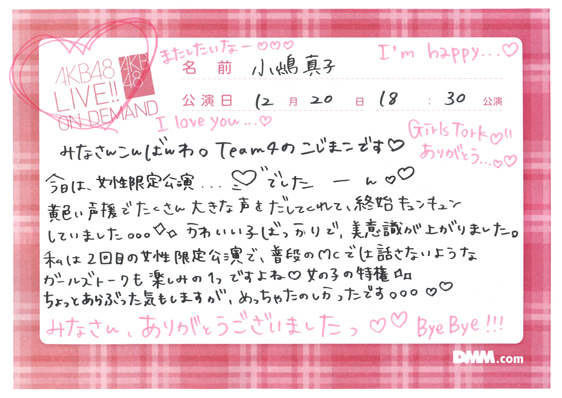 AKB48
LIVE!!
ON DEMAND
AKB
48
またしたいなー♡♡♡
I'm happy...♡
名 前 小嶋真子
公演日 12月20日 18:30 公演
I love you...♡
Girls Tork♡!!
ありがとう...♡
みなさんこんばんわ。Team4のこじまこです♡
今日は、女性限定公演...♡でした ーん♡♡
黄色い声援でたくさん大きな声をだしてくれて、終始キュンキュン
していました。。。◇◇ かわいい子ばっかりで、美意識が上がりました。
私は2回目の女性限定公演で、普段のMCでは話さないような
ガールズトークも楽しみの1つですよね♡女の子の特権◇◇
ちょっとあらぶった気もしますが、めっちゃたのしかったです。。。♡♡
みなさん、ありがとうございましたっ♡♡ Bye Bye!!!
DMM.com